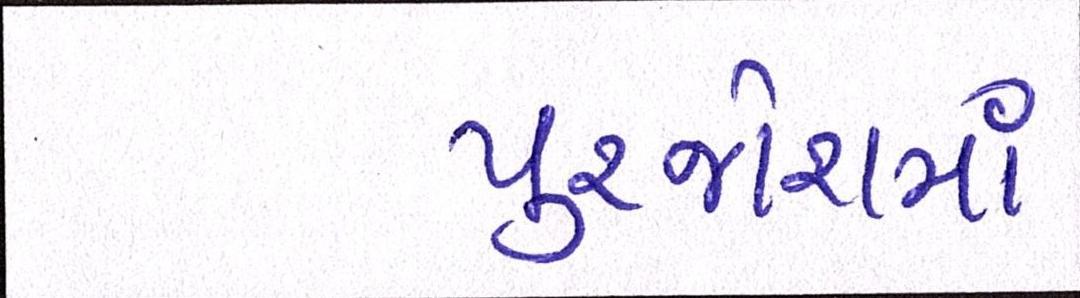 પુરજોશમાં